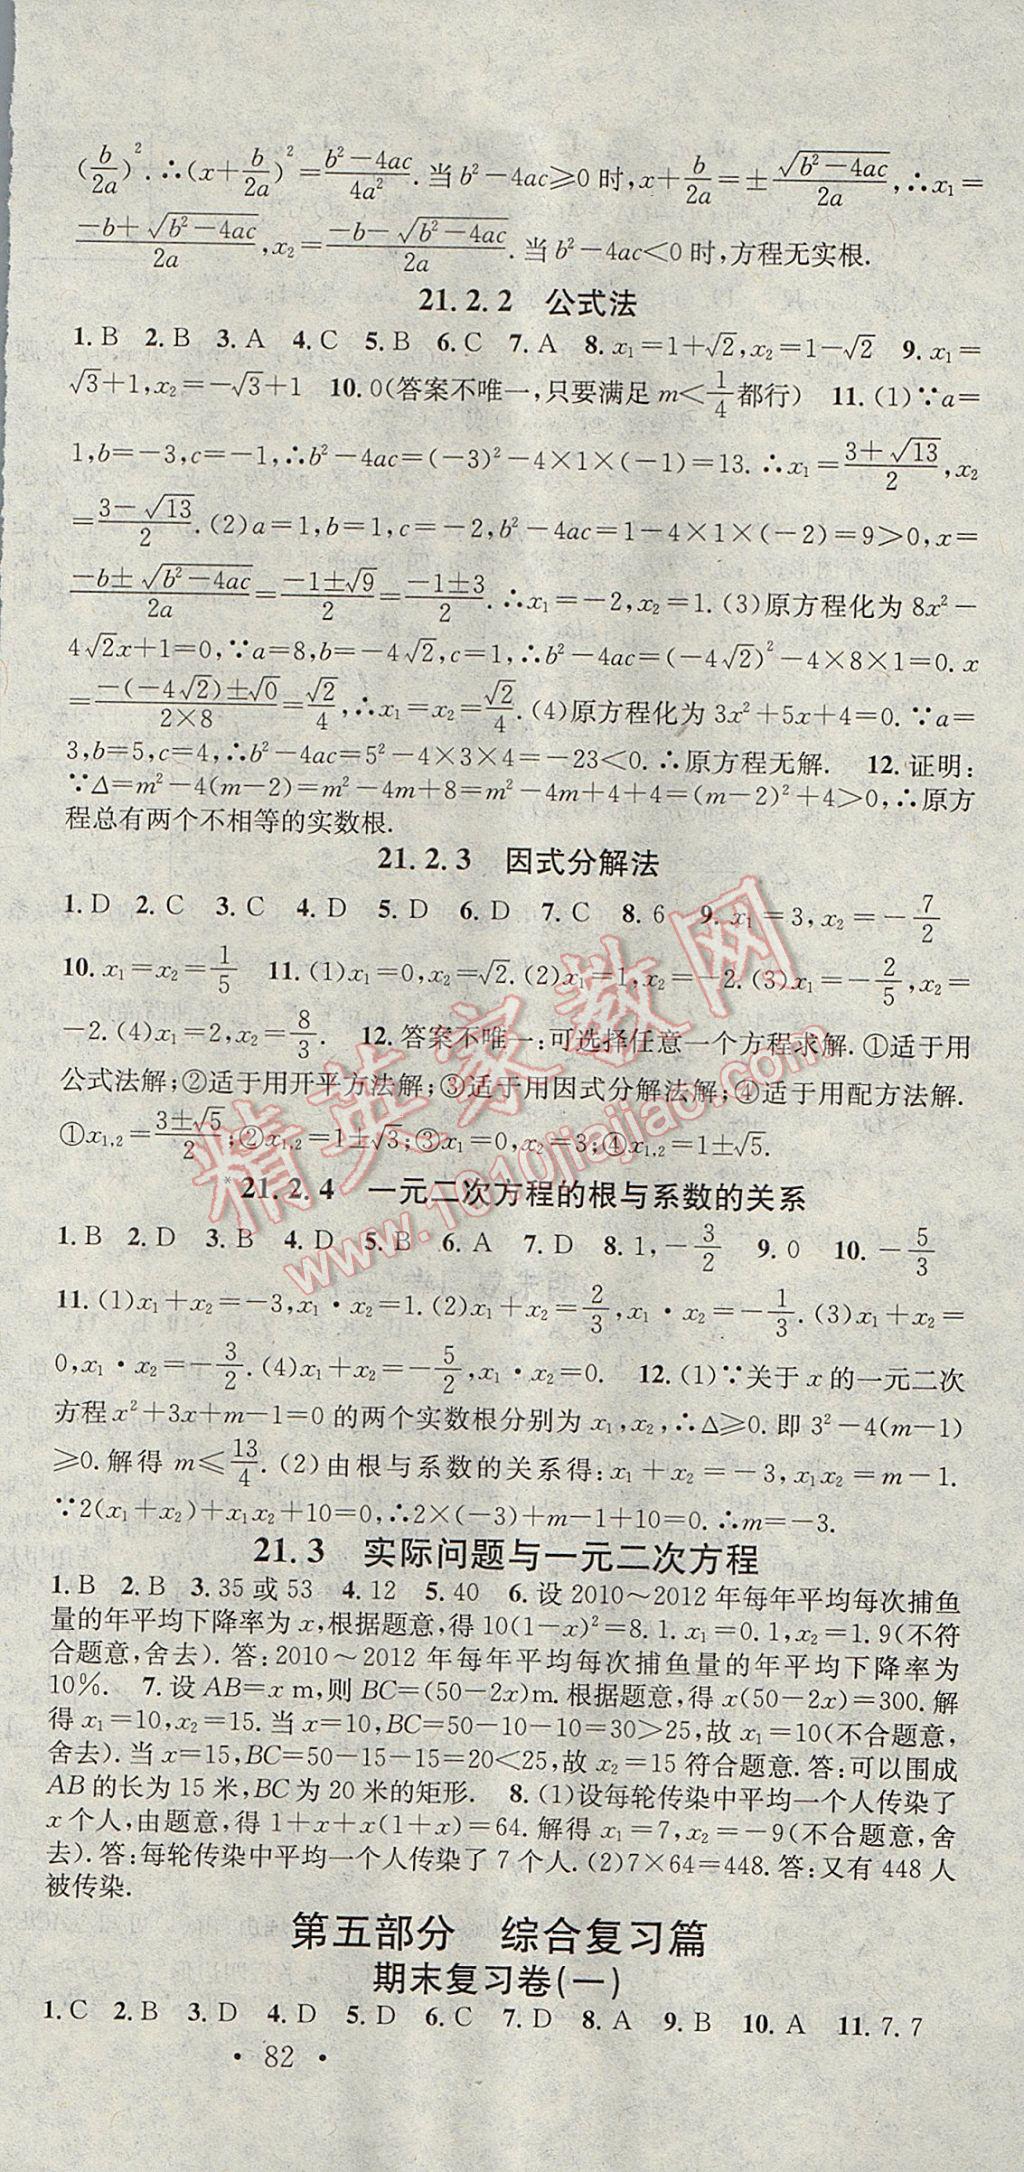 (b/2a)².∴(x+b/2a)²=(b²-4ac)/4a².当 b²-4ac≥0 时,x+b/2a=±√(b²-4ac)/2a,∴x₁=
(-b+√(b²-4ac))/2a,x₂=(-b-√(b²-4ac))/2a.当 b²-4ac<0 时,方程无实根.
21.2.2 公式法
1.B 2.B 3.A 4.C 5.B 6.C 7.A 8.x₁=1+√2,x₂=1-√2 9.x₁=
√3+1,x₂=-√3+1 10.0(答案不唯一,只要满足 m<1/4都行) 11.(1)∵a=
1,b=-3,c=-1,∴b²-4ac=(-3)²-4×1×(-1)=13.∴x₁=(3+√13)/2,x₂
=(3-√13)/2.(2)a=1,b=1,c=-2,b²-4ac=1-4×1×(-2)=9>0,x=
(-b±√(b²-4ac))/2a=(-1±√9)/2=(-1±3)/2.∴x₁=-2,x₂=1.(3)原方程化为 8x²-
4√2x+1=0,∵a=8,b=-4√2,c=1,∴b²-4ac=(-4√2)²-4×8×1=0.x
=(-(-4√2)±√0)/(2×8)=√2/4,∴x₁=x₂=√2/4.(4)原方程化为 3x²+5x+4=0.∵a=
3,b=5,c=4,∴b²-4ac=5²-4×3×4=-23<0.∴原方程无解. 12.证明:
∵Δ=m²-4(m-2)=m²-4m+8=m²-4m+4+4=(m-2)²+4>0,∴原方
程总有两个不相等的实数根.
21.2.3 因式分解法
1.D 2.C 3.C 4.D 5.D 6.D 7.C 8.6 9.x₁=3,x₂=-7/2
10.x₁=x₂=1/5 11.(1)x₁=0,x₂=√2.(2)x₁=1,x₂=-2.(3)x₁=-2/5,x₂=
-2.(4)x₁=2,x₂=8/3. 12.答案不唯一:可选择任意一个方程求解.①适于用
公式法解;②适于用开平方法解;③适于用因式分解法解;④适于用配方法解.
①x₁,₂=(3±√5)/2;②x₁,₂=1±√3;③x₁=0,x₂=3;④x₁,₂=1±√5.
*21.2.4 一元二次方程的根与系数的关系
1.B 2.D 3.B 4.D 5.B 6.A 7.D 8.1,-3/2 9.0 10.-5/3
11.(1)x₁+x₂=-3,x₁·x₂=1.(2)x₁+x₂=2/3,x₁·x₂=-1/3.(3)x₁+x₂=
0,x₁·x₂=-3/2.(4)x₁+x₂=-5/2,x₁·x₂=0. 12.(1)∵关于 x 的一元二次
方程 x²+3x+m-1=0 的两个实数根分别为 x₁,x₂,∴Δ≥0.即 3²-4(m-1)
≥0.解得 m≤13/4.(2)由根与系数的关系得:x₁+x₂=-3,x₁x₂=m-1.
∵2(x₁+x₂)+x₁x₂+10=0,∴2×(-3)+m-1+10=0.∴m=-3.
21.3 实际问题与一元二次方程
1.B 2.B 3.35 或 53 4.12 5.40 6.设 2010～2012 年每年平均每次捕鱼
量的年平均下降率为 x,根据题意,得 10(1-x)²=8.1.x₁=0.1,x₂=1.9(不符
合题意,舍去).答:2010～2012 年每年平均每次捕鱼量的年平均下降率为
10%. 7.设 AB=x m,则 BC=(50-2x)m.根据题意,得 x(50-2x)=300.解
得 x₁=10,x₂=15.当 x=10,BC=50-10-10=30>25,故 x₁=10(不合题意,
舍去).当 x=15,BC=50-15-15=20<25,故 x₂=15 符合题意.答:可以围成
AB 的长为 15 米,BC 为 20 米的矩形. 8.(1)设每轮传染中平均一个人传染了
x 个人,由题意,得 1+x+x(1+x)=64.解得 x₁=7,x₂=-9(不合题意,舍
去).答:每轮传染中平均一个人传染了 7 个人.(2)7×64=448.答:又有 448 人
被传染.
第五部分 综合复习篇
期末复习卷(一)
1.C 2.B 3.D 4.D 5.D 6.C 7.D 8.A 9.B 10.A 11.7.7
·82·
精英家教网
www.1010jiajiao.com